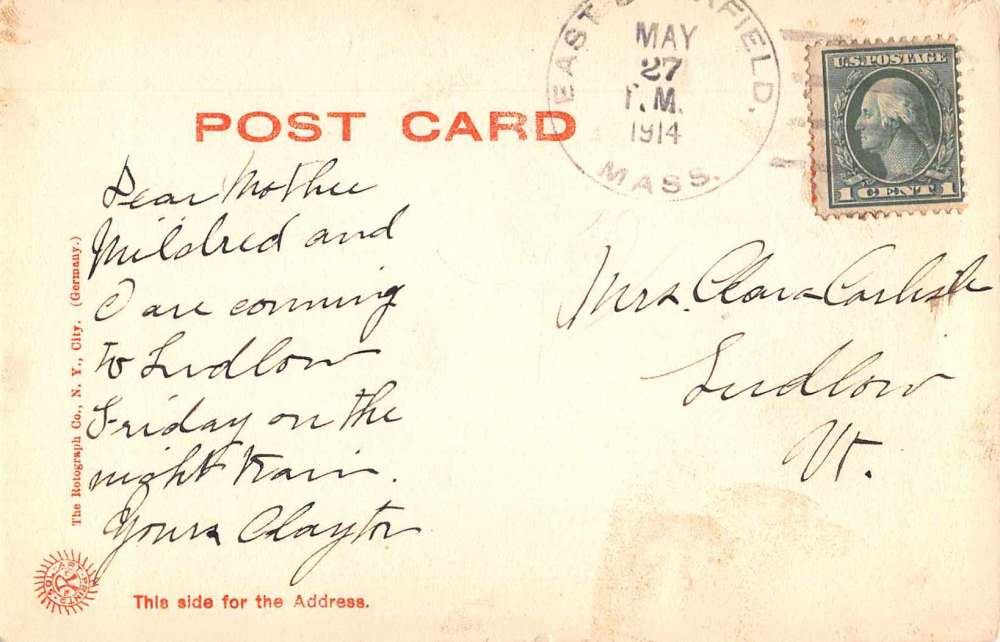 EAST FIELD.
MAY
27
M.
1914
MASS.
U.S. POSTAGE
1 CENT 1
POST CARD
Dear Mother
Mildred and
I are comming
to Ludlow
Friday on the
night train.
Yours Clayton
Mrs. Clara Carlisle
Ludlow
Vt.
The Rotograph Co., N. Y., City. (Germany.)
This side for the Address.